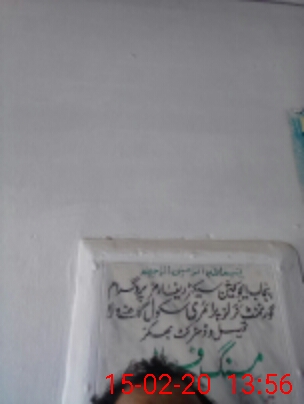 بسم اللہ الرحمن الرحیم
پنجاب ایجوکیشن سیکٹر ریفارمز پروگرام
گورنمنٹ گرلز پرائمری سکول
تحصیل و ڈسٹرکٹ بھکر
15-02-20 13:56